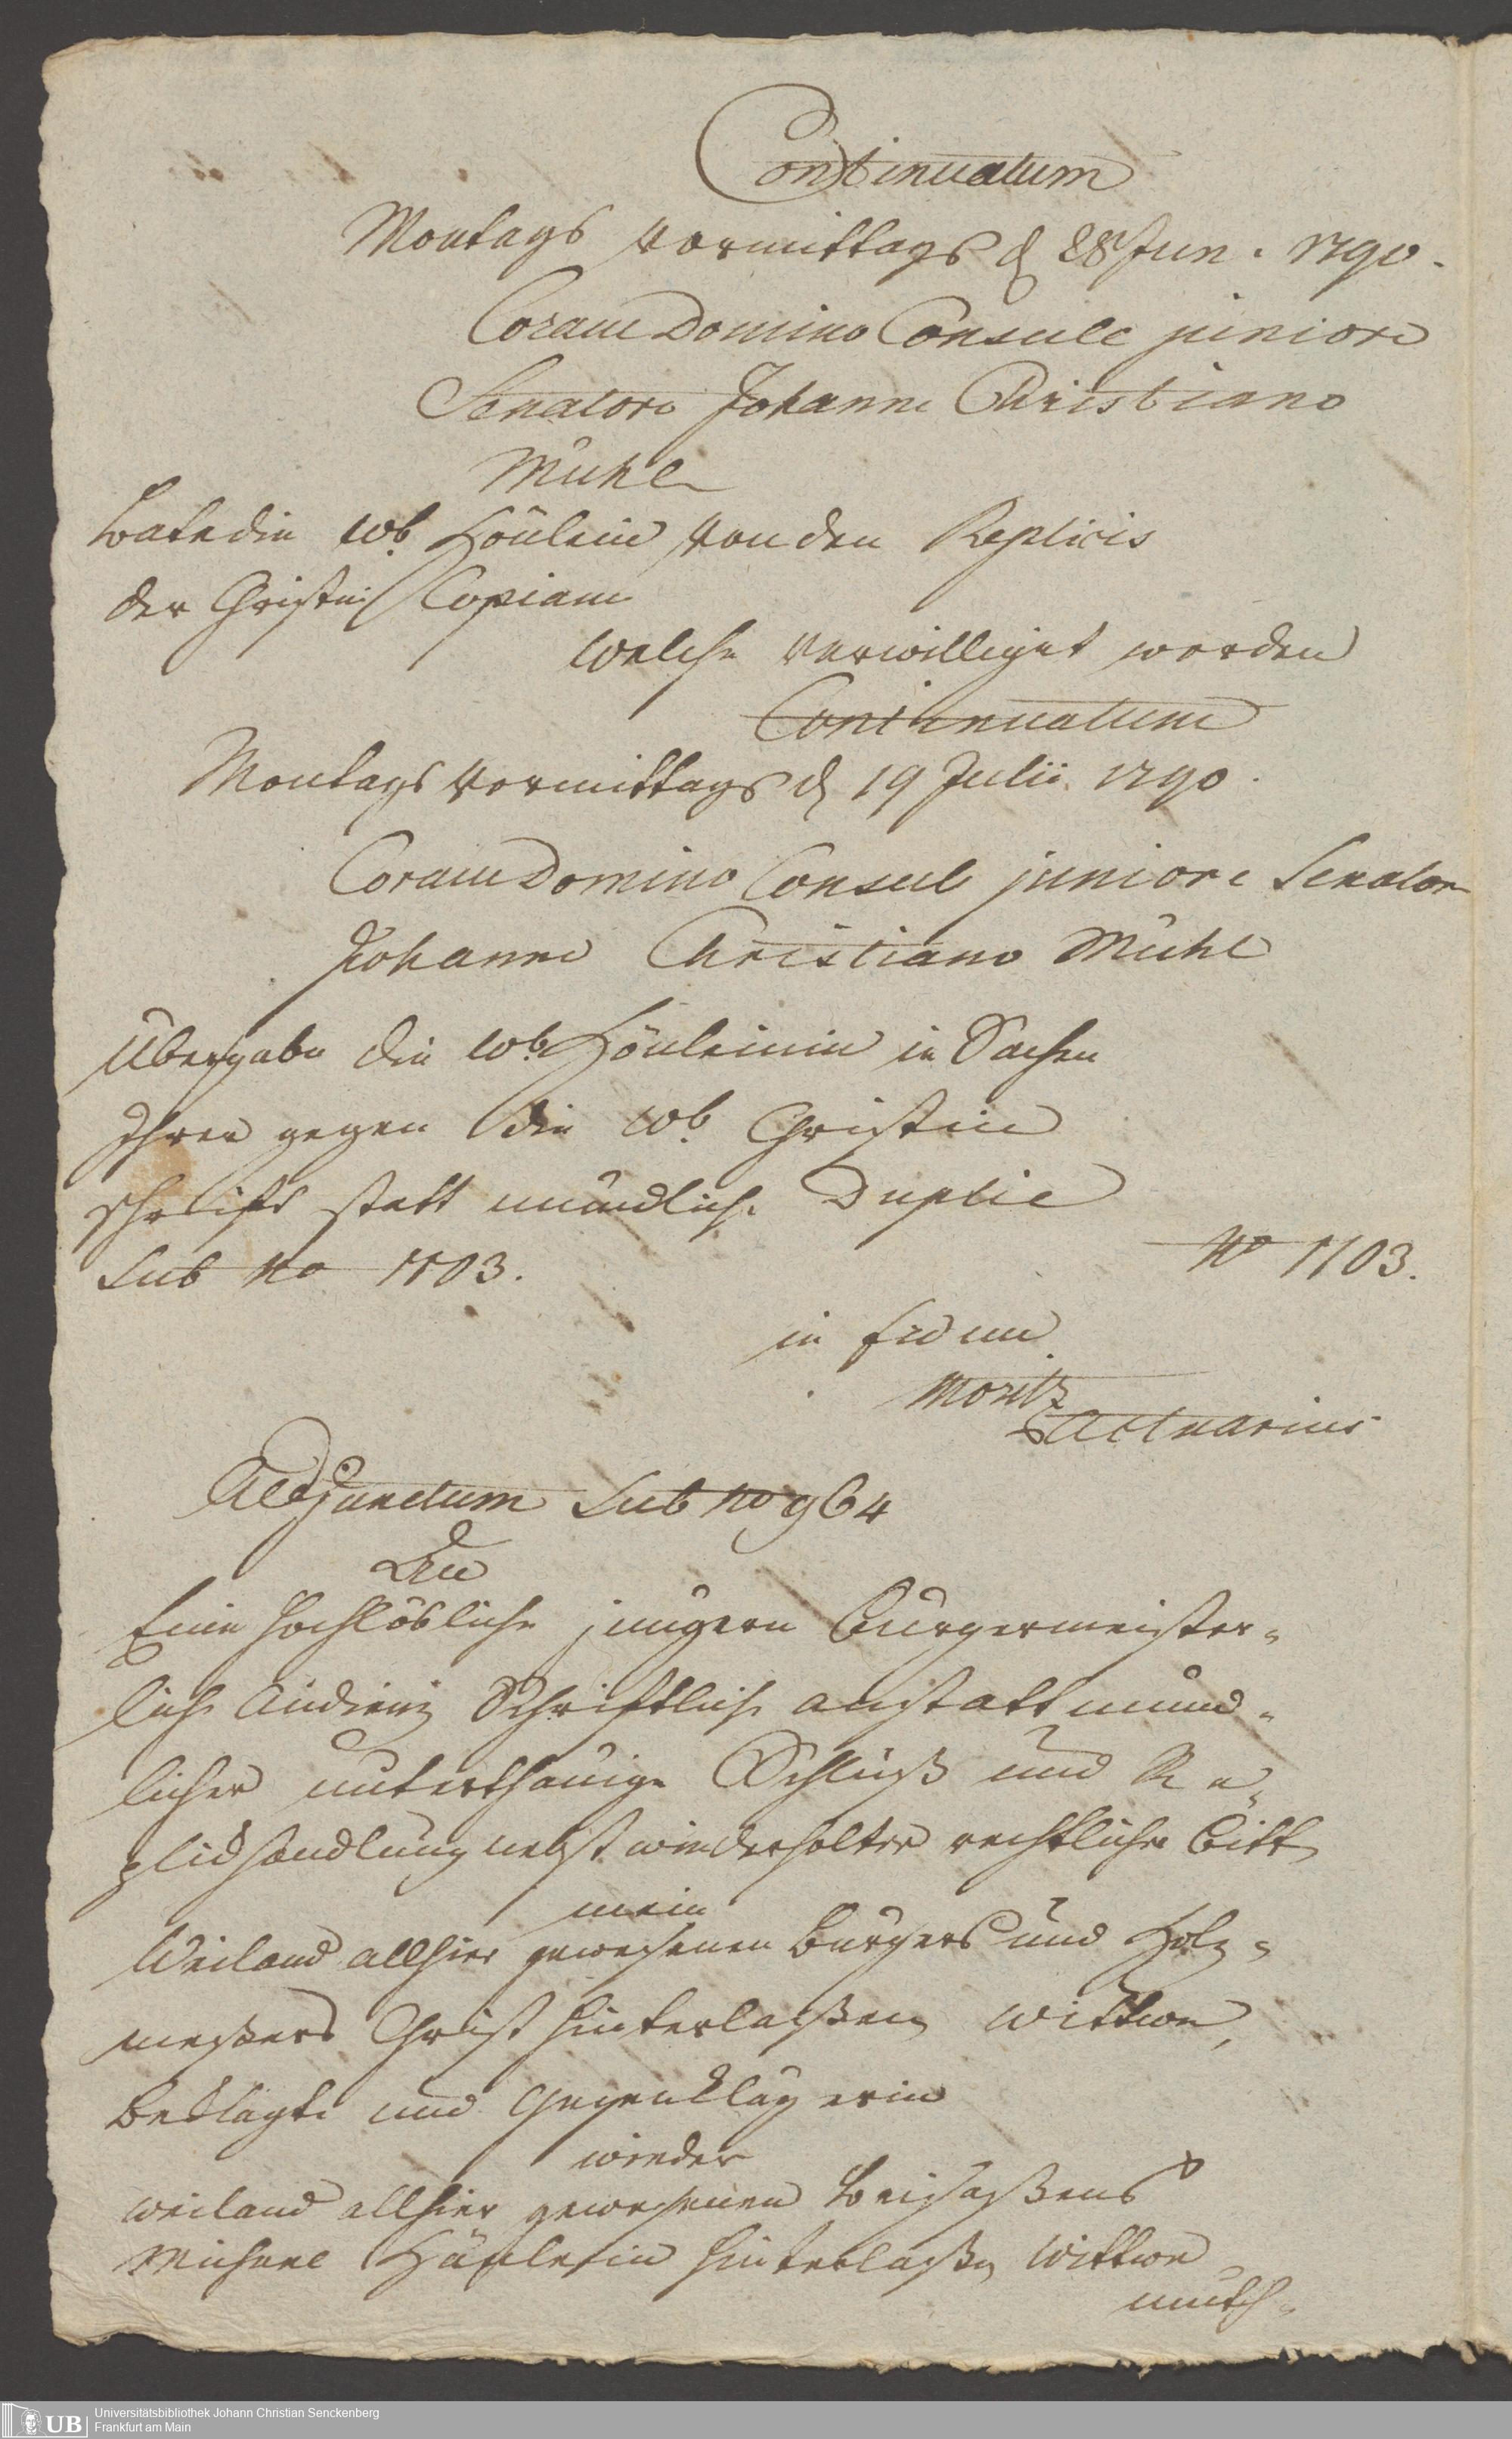 Continuatum
Montags vormittags d 28 Jun. 1790.
Coram Domino Consule juniore
Senatore Johanne Christiano
Mühl
Bate die Wb Häulein von den Replicis
der Christin Copiam
welche verwilliget worden
Continuatum
Montags vormittags d 19 Julii 1790.
Coram Domino Consule juniore Senatore
Johanne Christiano Mühl
Übergabe die Wb Häuleinin in Sachen
Ihrer gegen die Wb Christin
schriftl statt mündliche Duplic
sub No 1103.
No 1103.
in fidem
Moritz
Actuarius
Adjunctum sub No 964
An
Eine hochlöbliche jüngern Burgermeister-
liche Audienz Schriftliche anstatt münd-
licher unterthänige Schluß und Re-
plichandlung nebst wiederholter rechtliche Bitt
mein
Weiland allhier gewesenen Burgers und Holz-
meßers Christ hinterlaßen Wittwe,
Beklagte und Gegenklägerin
wieder
weiland allhier gewesenen Beisaßens
Michael Häulein hinterlaßn Wittwe
muth-
Universitätsbibliothek Johann Christian Senckenberg
Frankfurt am Main
UB